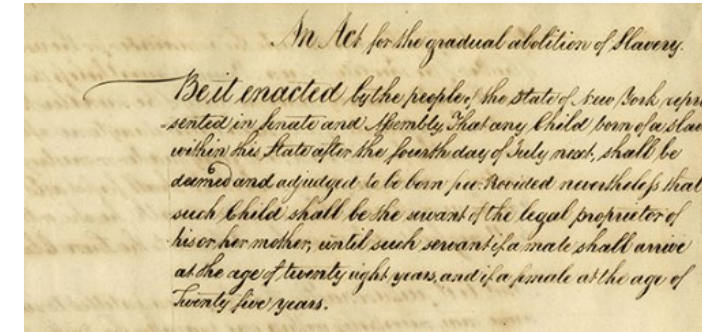 An Act for the gradual abolition of Slavery.
Be it enacted by the people of the State of New York repre
sented in Senate and Assembly, That any Child born of a slav
within this State after the fourth day of July next, shall be
deemed and adjudged to be born free: Provided nevertheless that
such Child shall be the servant of the legal proprietor of
his or her mother, until such servant if a male shall arrive
at the age of twenty eight years, and if a female at the age of
twenty five years.